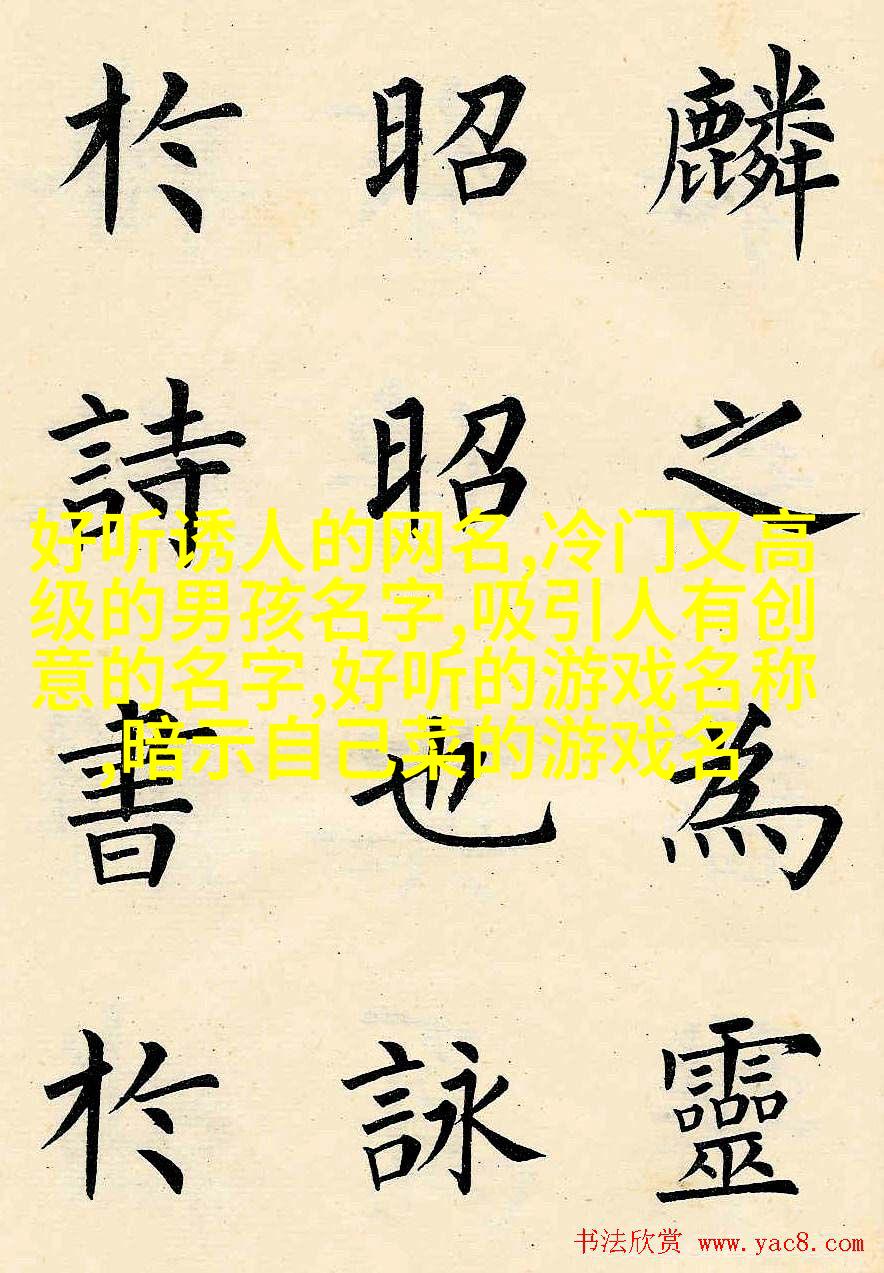 麟之為靈
昭昭也詠
於詩書於
好听诱人的网名,冷门又高
级的男孩名字,吸引人有创
意的名字,好听的游戏名称
,暗示自己菜的游戏名
书法欣赏 www.yac8.com